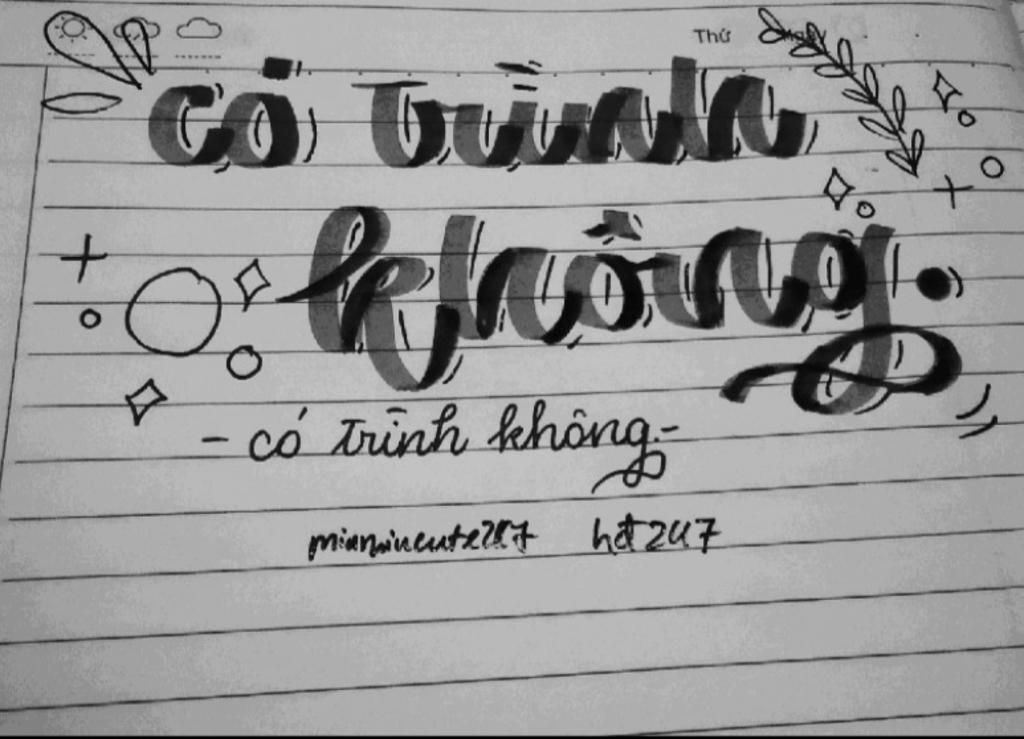 Thứ Ngày
có trình
không.
- có trình không. -
mianmiucute247 hđt247